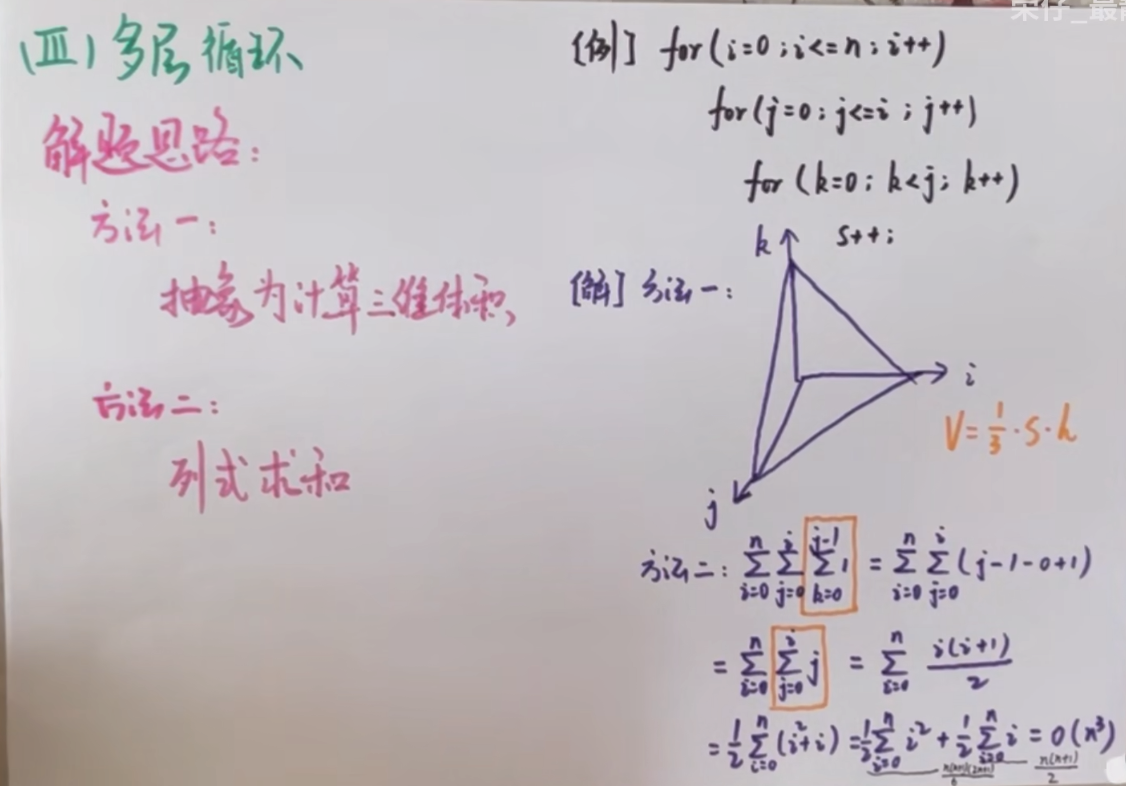 (Ⅲ) 多层循环
解题思路:
方法一:
抽象为计算三维体积
方法二:
列式求和
[例] for(i=0;i<=n;i++)
for(j=0;j<=i;j++)
for(k=0;k<j;k++)
s++;
[解] 方法一:
k
i
j
V=1/3·S·h
方法二: ∑_{i=0}^{n} ∑_{j=0}^{i} ∑_{k=0}^{j-1} 1 = ∑_{i=0}^{n} ∑_{j=0}^{i} (j-1-0+1)
= ∑_{i=0}^{n} ∑_{j=0}^{i} j = ∑_{i=0}^{n} i(i+1)/2
= 1/2 ∑_{i=0}^{n} (i²+i) = 1/2 ∑_{i=0}^{n} i² + 1/2 ∑_{i=0}^{n} i = O(n³)
n(n+1)(2n+1)/6 n(n+1)/2